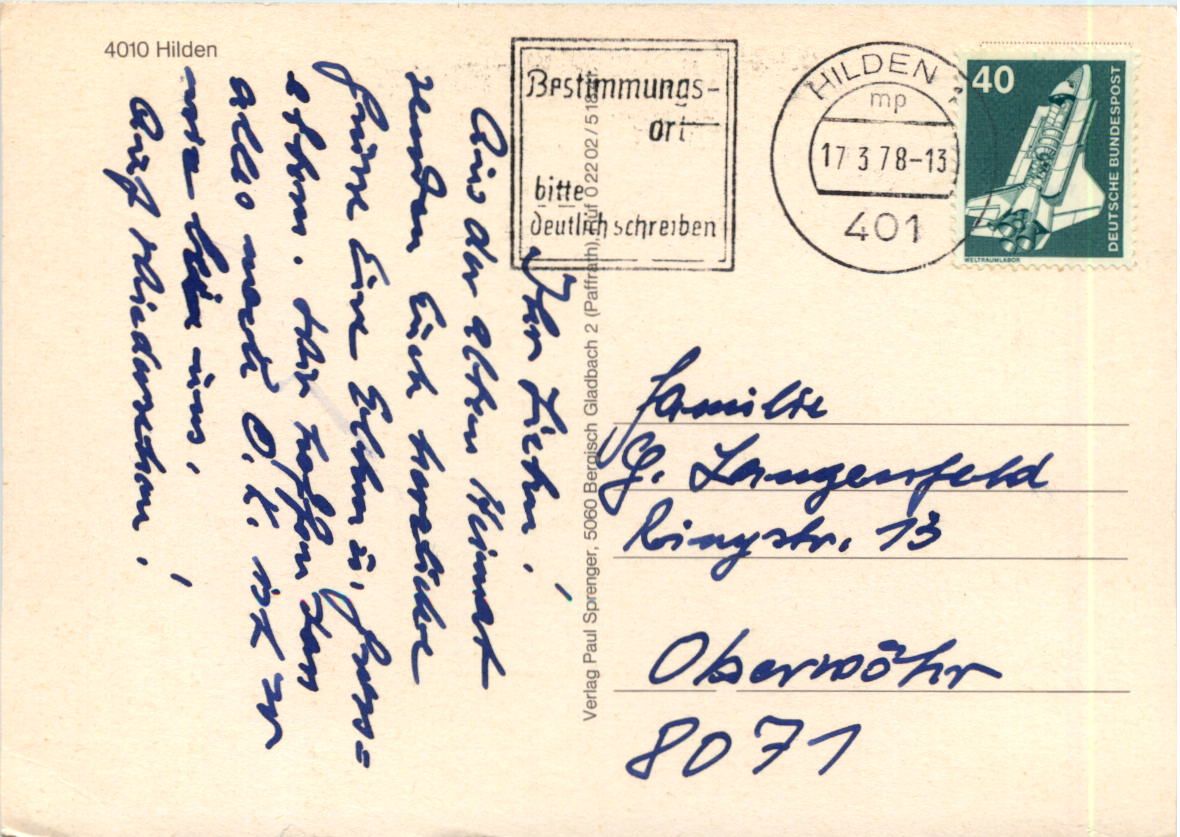 4010 Hilden
Ihr Lieben!
Aus der alten Heimat
senden Euch herzliche
Grüsse Eure Eltern u. Gross=
eltern. Wir hoffen dass
alles O.K. ist
bei uns.
Auf Wiedersehen!
Verlag Paul Sprenger, 5060 Bergisch Gladbach 2 (Paffrath), Ruf 0 22 02 / 5 18
Bestimmungs-
ort
bitte
deutlich schreiben
HILDEN
mp
17 3 78-13
401
40
DEUTSCHE BUNDESPOST
WELTRAUMLABOR
Familie
G. Langenfeld
Ringstr. 13
Oberwöhr
8071